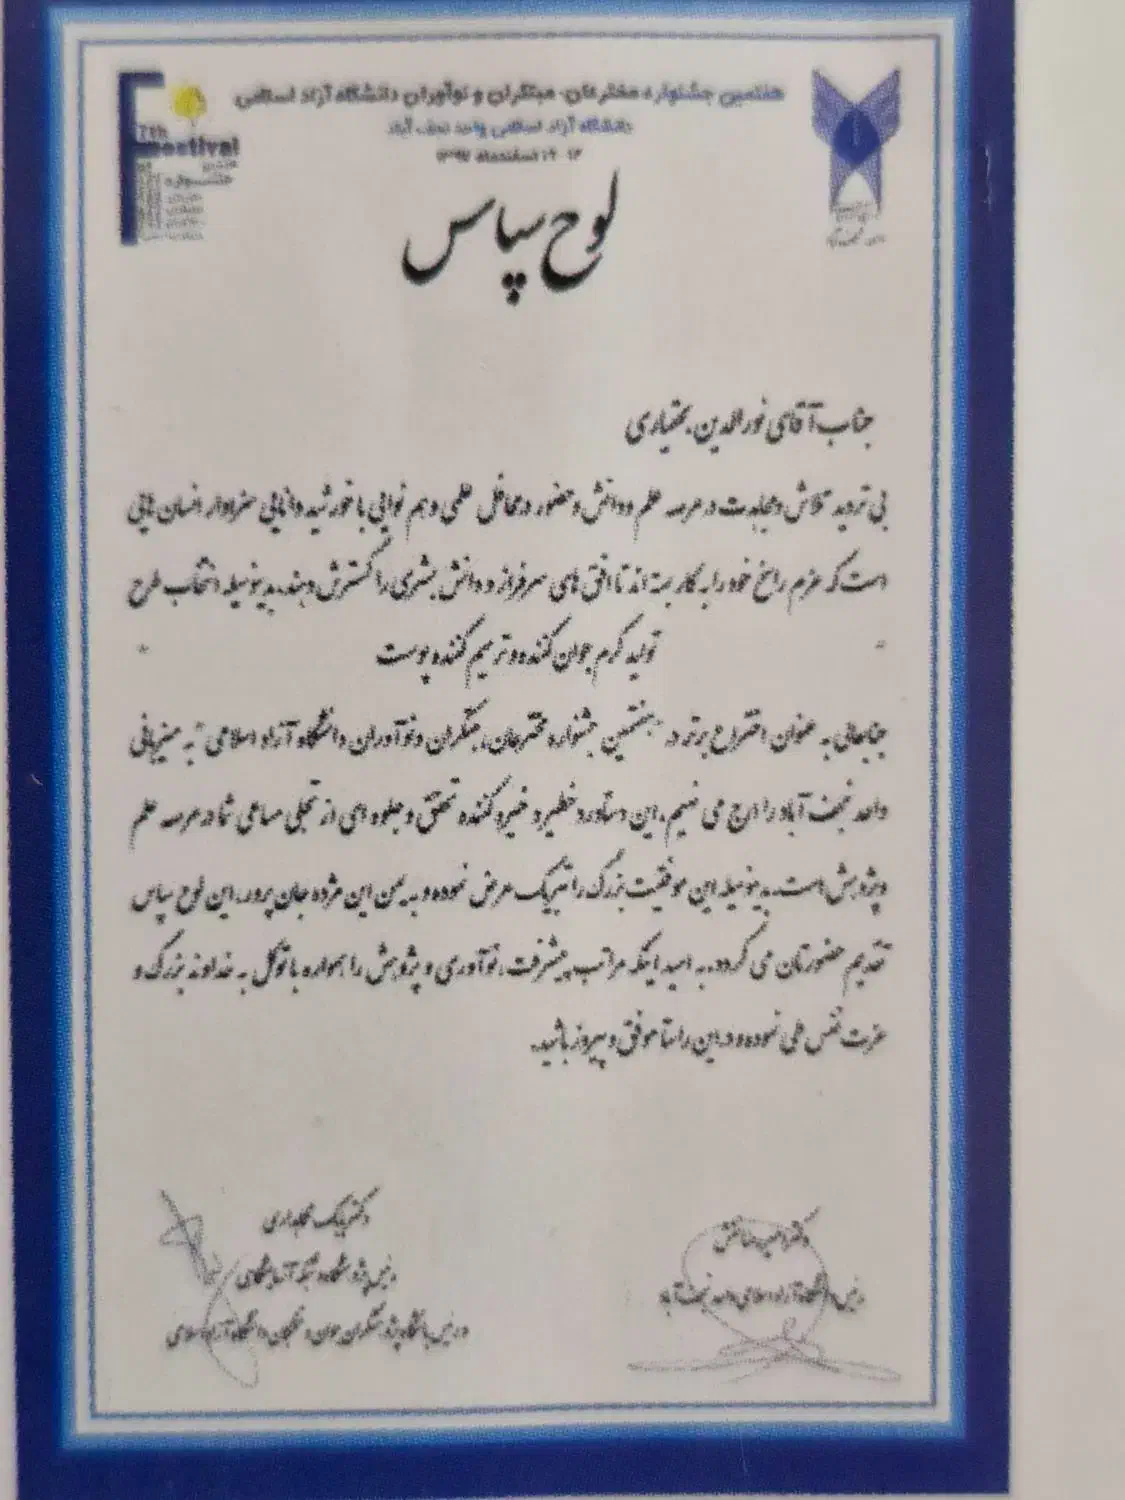 هفتمین جشنواره مخترعان، مبتکران و نوآوران دانشگاه آزاد اسلامی
دانشگاه آزاد اسلامی واحد نجف آباد
اسفندماه
7th
Festival
جشنواره
لوح سپاس
جناب آقای نورالدین بختیاری
بی تردید تلاش و مجاهدت در عرصه علم و دانش و حضور در محافل علمی و هم نوایی با خورشید دانایی سزاوار انسان هایی
است که عزم راسخ خود را به کار بسته اند تا افق های سرفراز و دانش بشری را گسترش دهند. بدینوسیله انتخاب طرح
تولید کرم جوان کننده و ترمیم کننده پوست
جنابعالی به عنوان اختراع برتر در "هفتمین جشنواره مخترعان، مبتکران و نوآوران دانشگاه آزاد اسلامی" به میزبانی
واحد نجف آباد را ارج می نهیم. این دستاورد خطیر و خیره کننده تحقق و جلوه ای از تجلی مساعی شما در عرصه علم
و پژوهش است. بدینوسیله این موفقیت بزرگ را تبریک عرض نموده و به یمن این مژده جان پرور، این لوح سپاس
تقدیم حضورتان می گردد. به امید اینکه مراتب پیشرفت، نوآوری و پژوهش را همواره با توکل به خداوند بزرگ و
عزت نفس طی نموده و در این راستا موفق و پیروز باشید.
دکتر
رئیس دانشگاه آزاد اسلامی واحد نجف آباد
دکتر بابک
رئیس
و رئیس باشگاه پژوهشگران جوان و نخبگان دانشگاه آزاد اسلامی